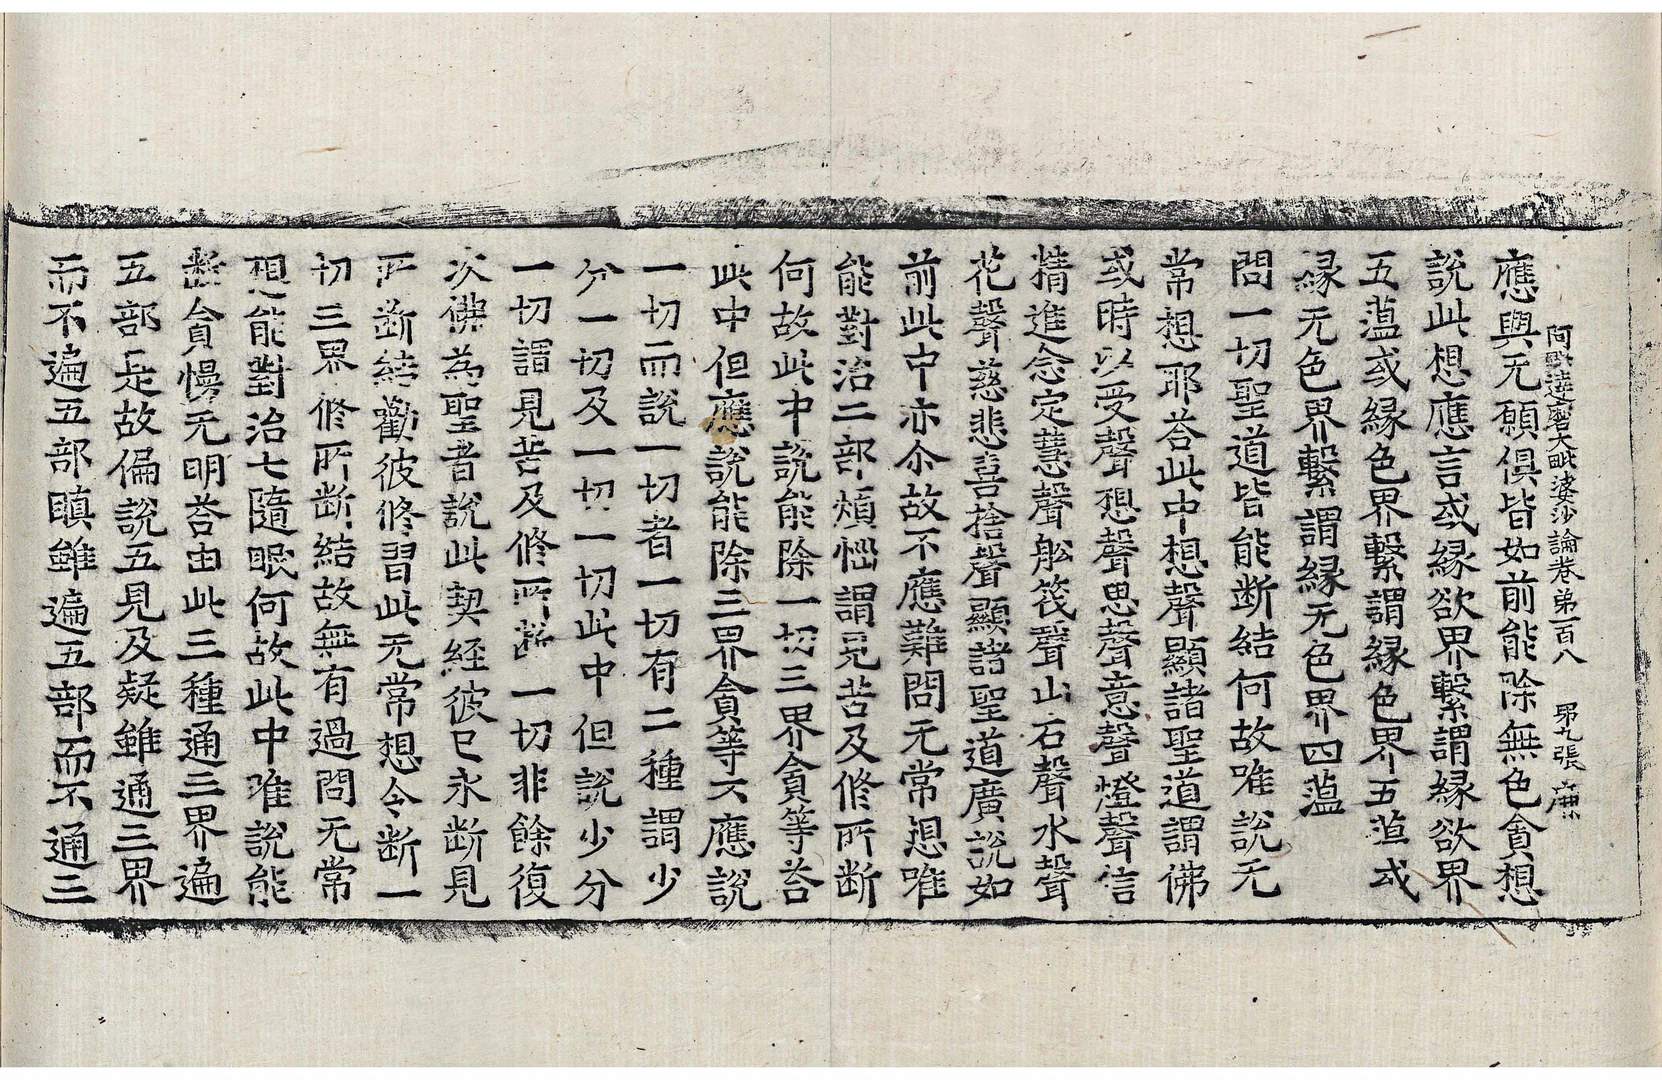 阿毗達磨大毗婆沙論卷第一百八　第九張　廉
應與无願俱皆如前能除無色貪想
說此想應言或緣欲界繫謂緣欲界
五蘊或緣色界繫謂緣色界五蘊或
緣无色界繫謂緣无色界四蘊
問一切聖道皆能断結何故唯說无
常想耶荅此中想聲顯諸聖道謂佛
或時以受聲想聲思聲意聲燈聲信
精進念定慧聲舩筏聲山石聲水聲
花聲慈悲喜捨聲顯諸聖道廣說如
前此中亦尒故不應難問无常想唯
能對治二部煩惱謂見苦及修所断
何故此中說能除一切三界貪等荅
此中但應說能除三界貪等不應說
一切而說一切者一切有二種謂少
分一切及一切一切此中但說少分
一切謂見苦及修所断一切非餘復
次佛為聖者說此契経彼已永断見
所断結勸彼修習此无常想令断一
切三界修所断結故無有過問无常
想能對治七隨眠何故此中唯說能
断貪慢无明荅由此三種通三界遍
五部是故偏說五見及疑雖通三界
而不遍五部瞋雖遍五部而不通三